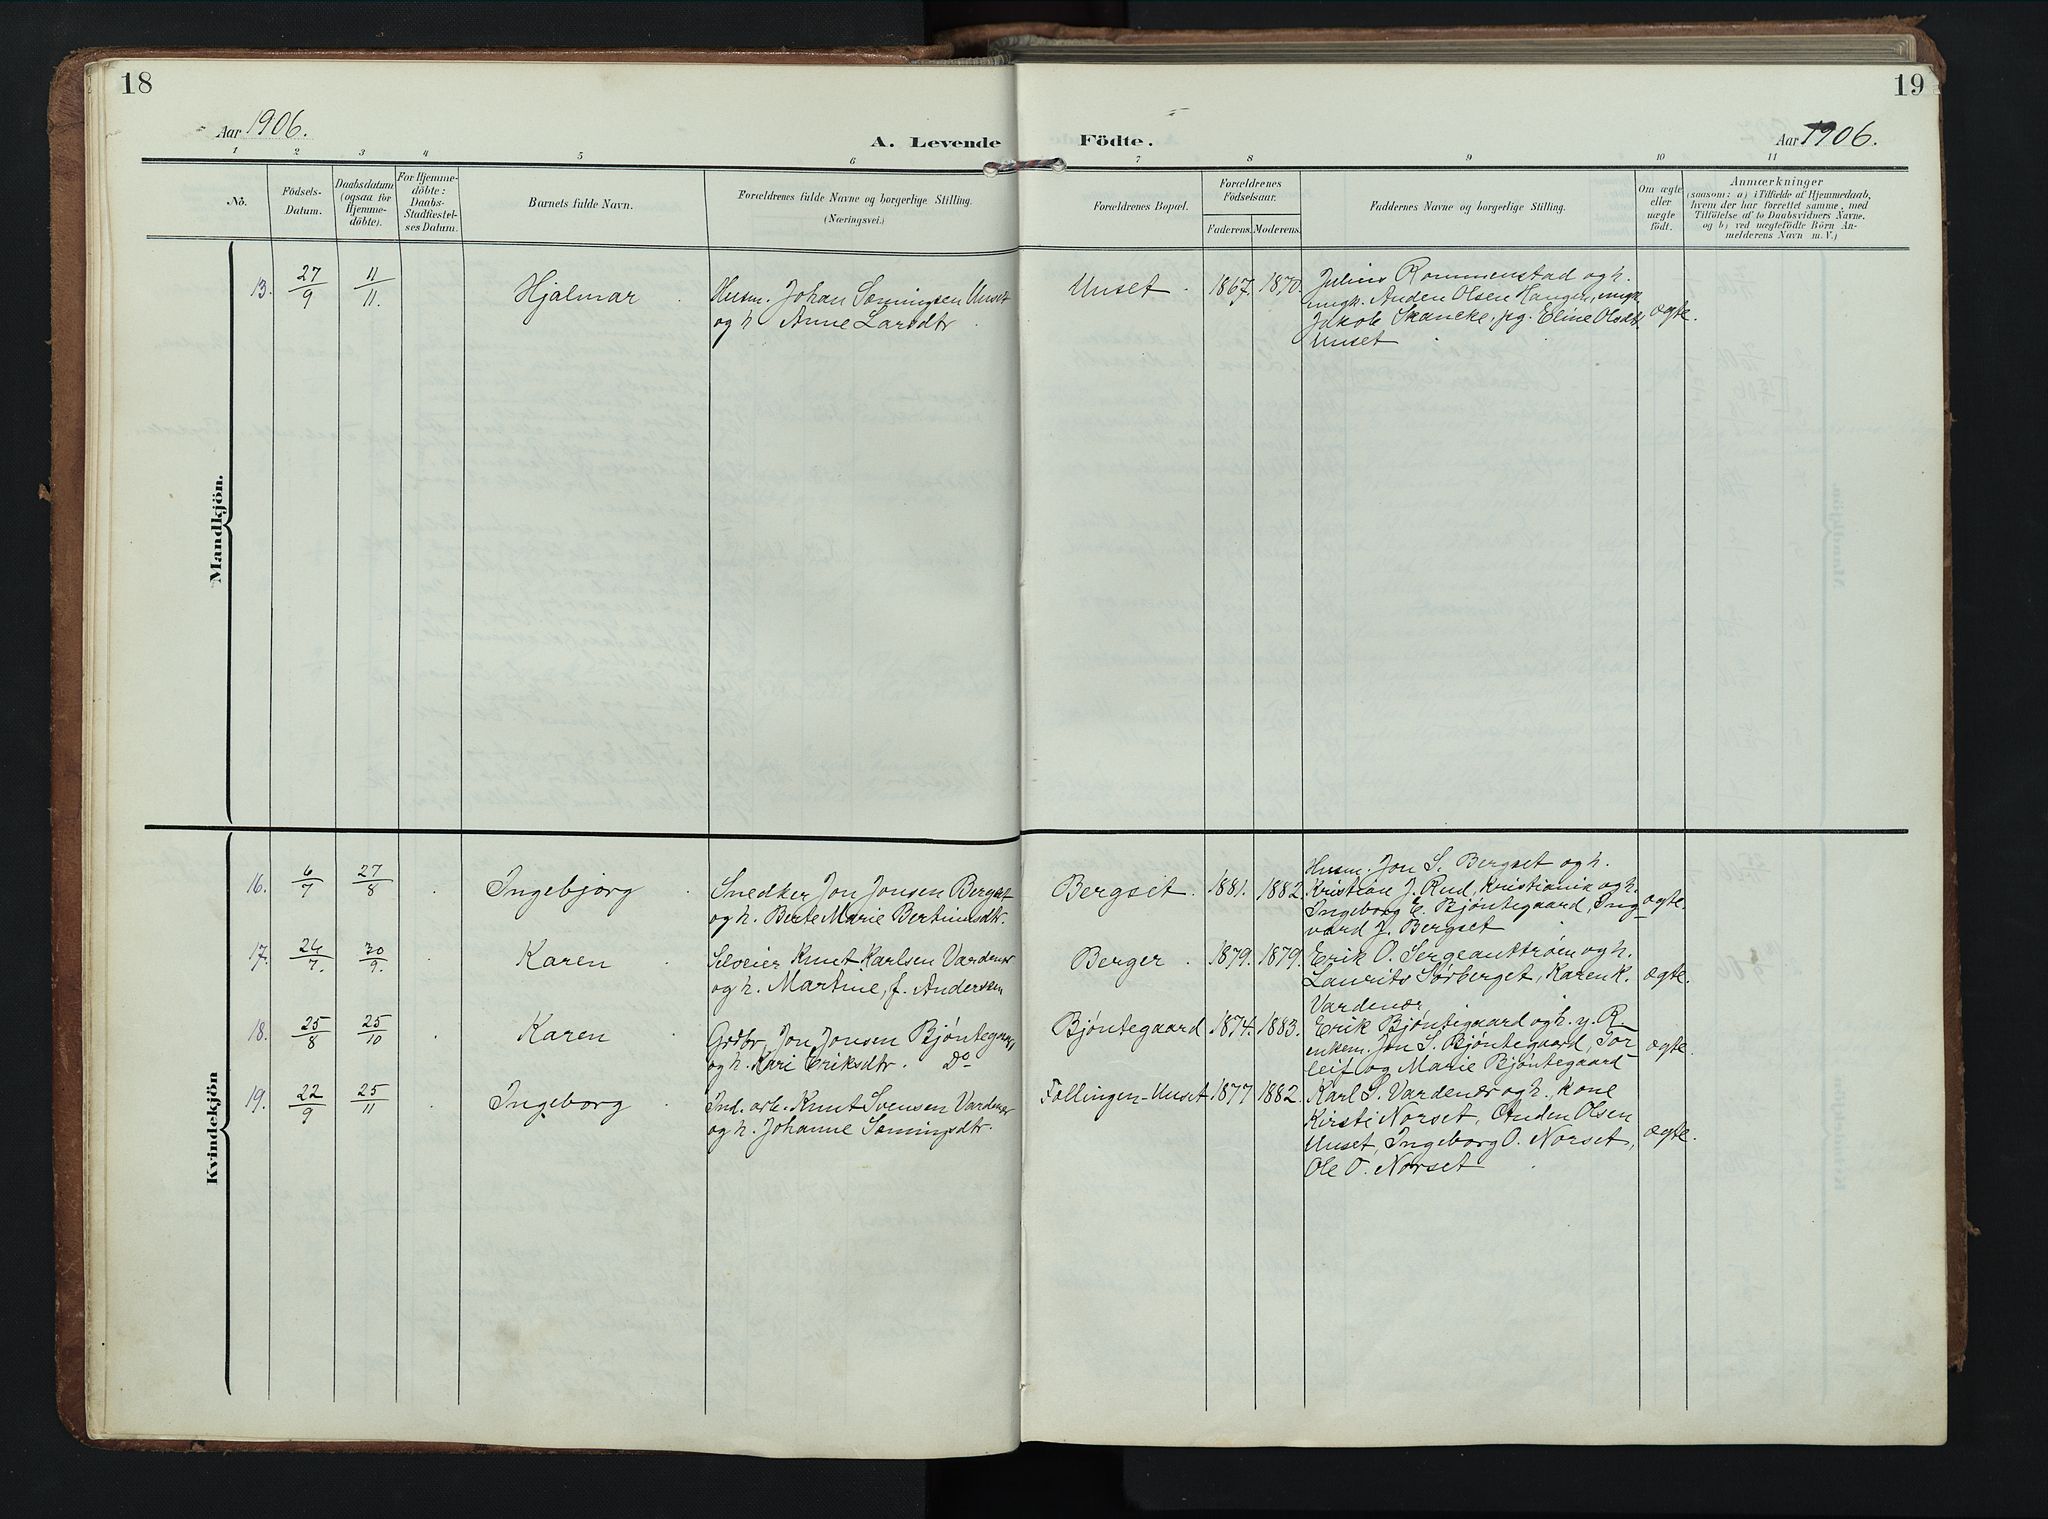 18
19
Aar 1906.
Aar 1906.
A. Levende Födte.
1 2 3 4 5 6 7 8 9 10 11
No.
Födsels-
Datum.
Daabsdatum
(ogsaa for
Hjemme-
döbte).
For Hjemme-
döbte:
Daabs-
Stadfæstel-
ses Datum.
Barnets fulde Navn.
Forældrenes fulde Navne og borgerlige Stilling.
(Næringsvei.)
Forældrenes Bopæl.
Forældrenes
Födselsaar.
Faderens. Moderens.
Faddernes Navne og borgerlige Stilling.
Om ægte
eller
uægte
födt.
Anmærkninger
(saasom: a) i Tilfælde af Hjemmedaab,
hvem der har forrettet samme, med
Tilföielse af to Daabsvidners Navne.
og b) ved uægtefödte Börn An-
melderens Navn m. V.)
Mandkjön.
13. 27/9 11/11. Hjalmar
Husm. Johan Sæmingsen Unset
og h Anne Larsdtr
Unset. 1867. 1870.
Julius Rommenstad og h.
ungk. Anden Olsen Hanger, ungk
Jakob Skancke, pg. Eline Olsdtr
Unset
ægte.
Kvindekjön
16. 6/7 27/8 Ingebjørg
Snedker Jon Jonsen Bergset
og h. Berte Marie Bertinusdtr.
Bergset. 1881. 1882
Husm. Jon S. Bergset og h.
Kristian J. Rud, Kristiania og h.
Ingeborg E. Bjøntegaard, Ing
vard J. Bergset
ægte.
17. 24/7. 30/9. Karen
Selveier Knut Karlsen Vardenær
og h. Martine, f. Andersen
Berger. 1879. 1879.
Erik O. Sergeantstrøen og h.
Laurits Sørberget, Karen K.
Vardenær
ægte.
18. 25/8 25/10 Karen
Grdbr. Jon Jonsen Bjøntegaard,
og h. Kari Eriksdtr. Do
Bjøntegaard 1874. 1883.
Erik Bjøntegaard og h. y. R
enkem. Jon S. Bjøntegaard, Tor
leif og Marie Bjøntegaard
ægte.
19. 22/9 25/11 Ingeborg
Ind. arb. Knut Svensen Vardenær
og h. Johanne Sæmingsdtr.
Follingen-Unset 1877 1882.
Karl S. Vardenær og h., Kone
Kirsti Norset, Anden Olsen
Unset, Ingeborg O. Norset,
Ole O. Norset
ægte.